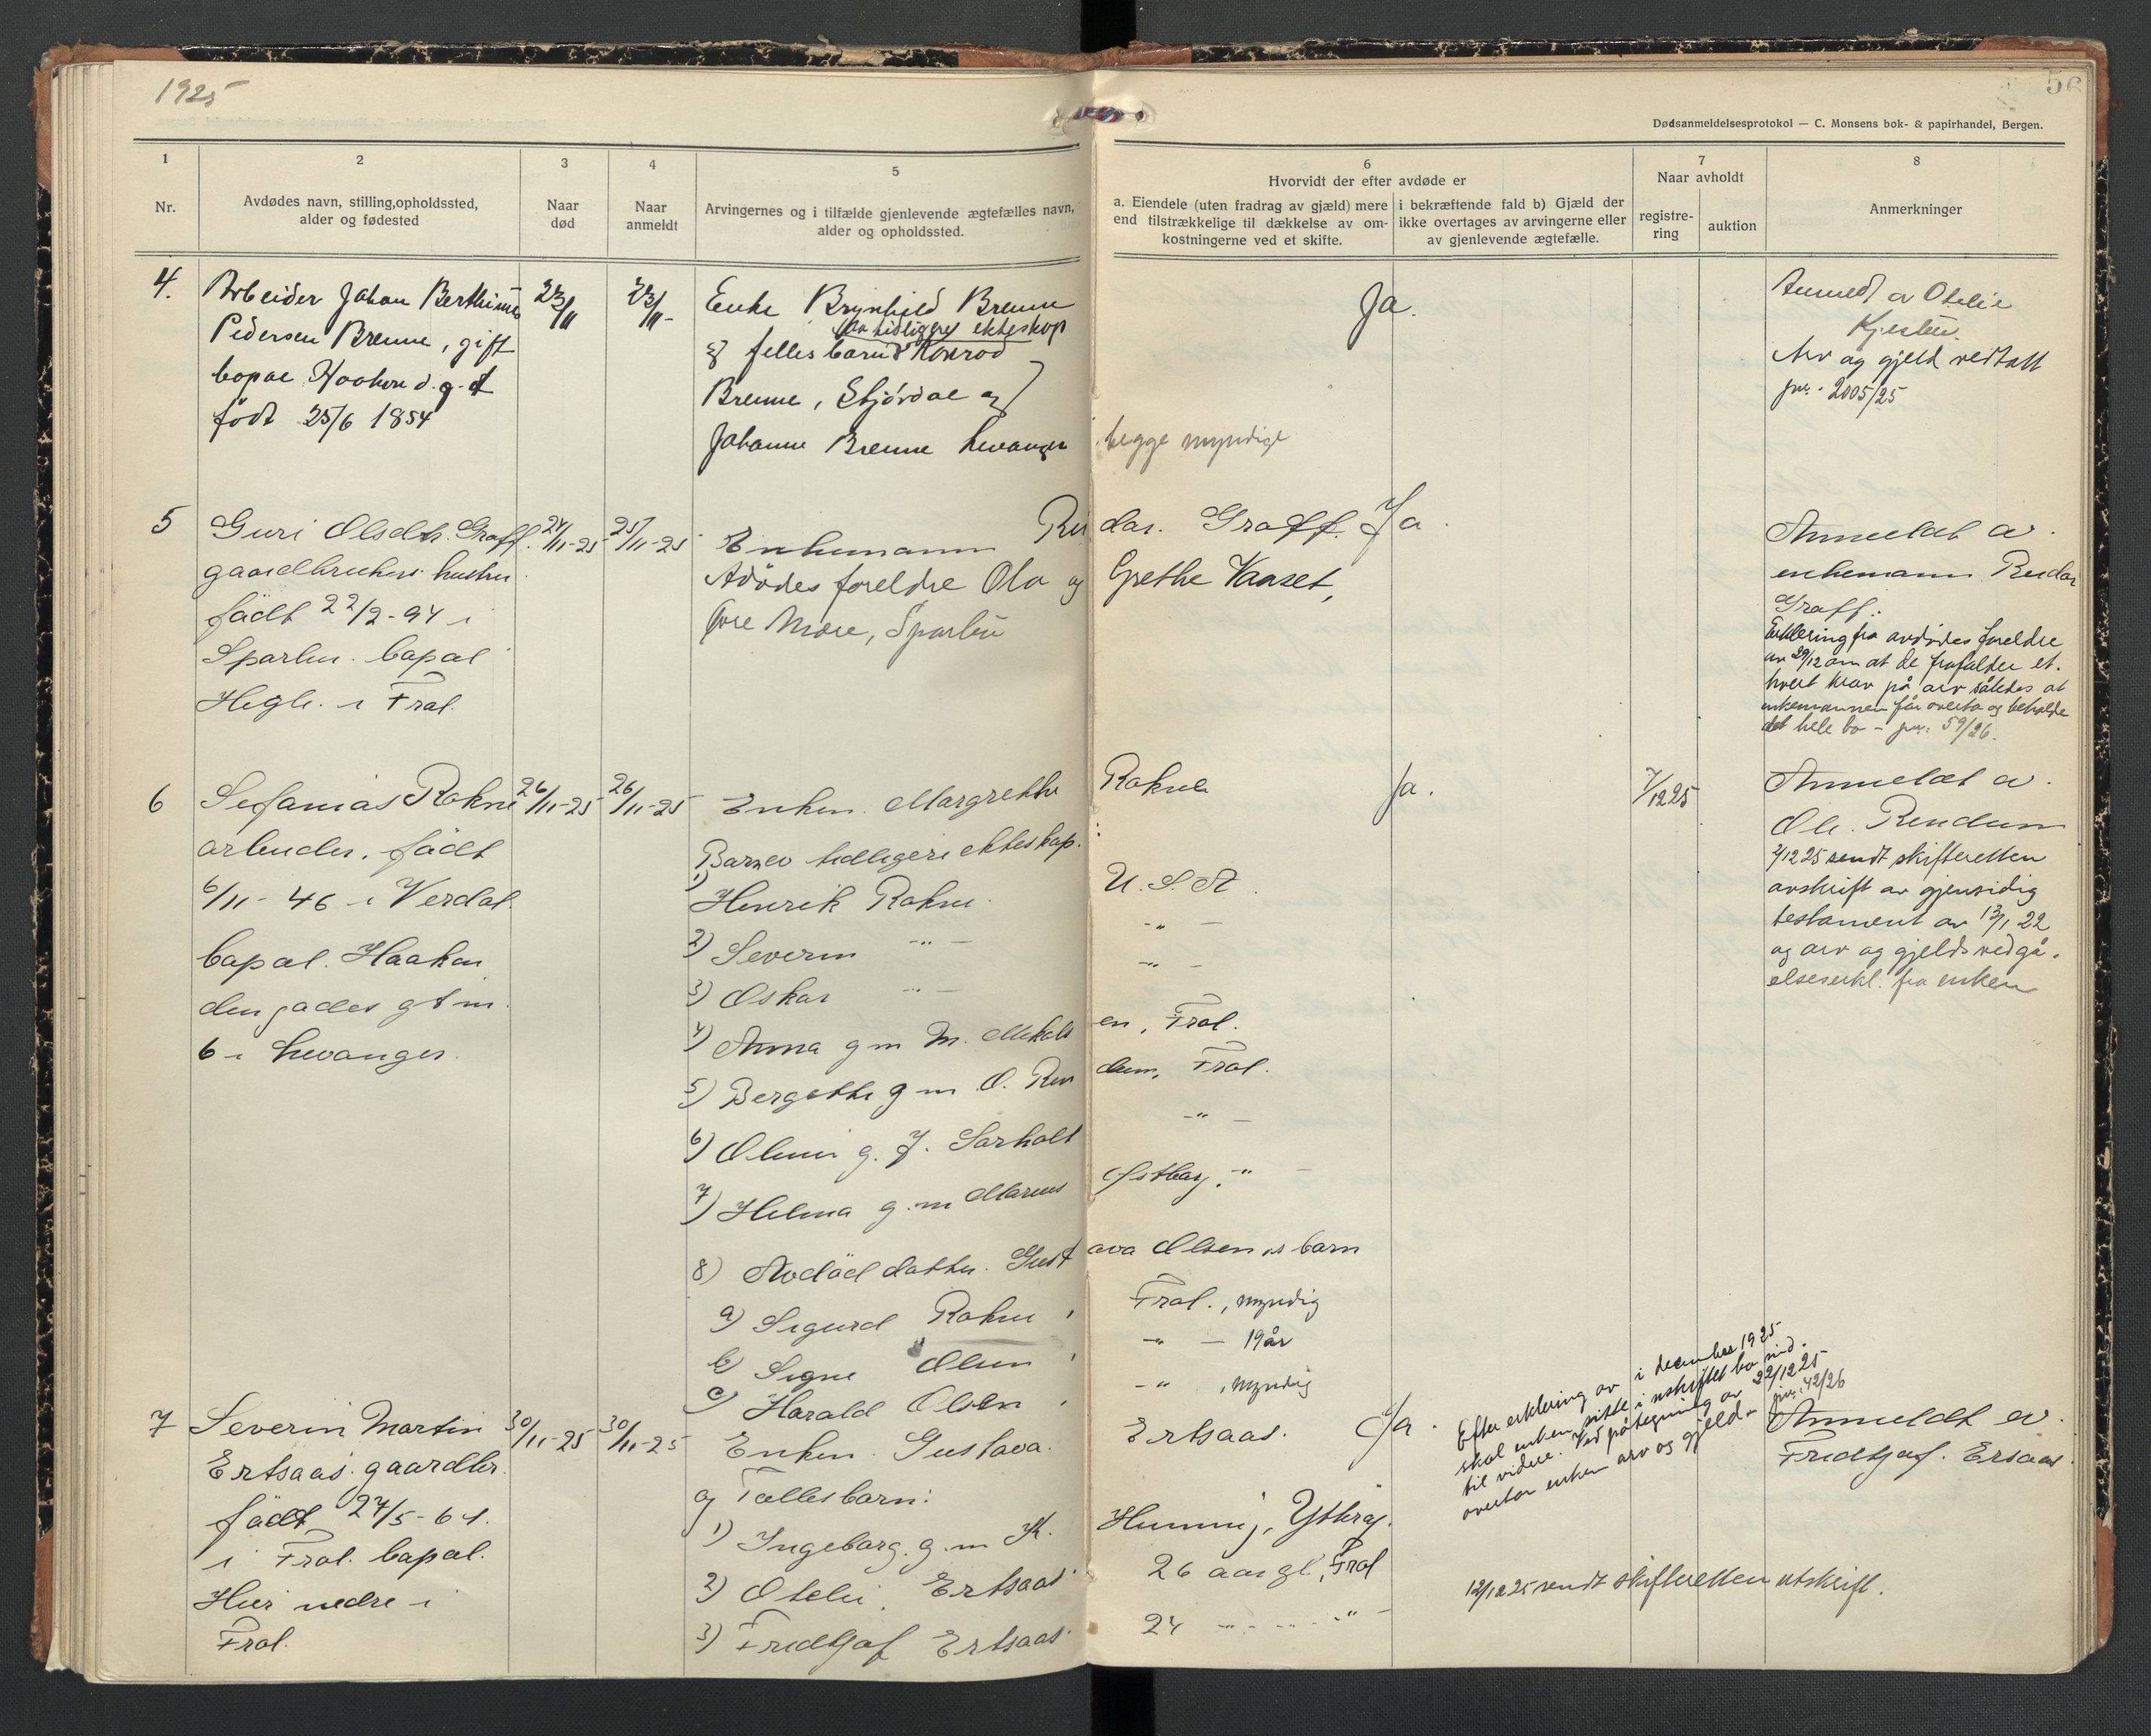 1925
56
Dødsanmeldelsesprotokol — C. Monsens bok- & papirhandel, Bergen.
1
Nr.
2
Avdødes navn, stilling, opholdssted,
alder og fødested
3
Naar
død
4
Naar
anmeldt
5
Arvingernes og i tilfælde gjenlevende ægtefælles navn,
alder og opholdssted.
6
Hvorvidt der efter avdøde er
a. Eiendele (uten fradrag av gjæld) mere
end tilstrækkelige til dækkelse av om-
kostningerne ved et skifte.
i bekræftende fald b) Gjæld der
ikke overtages av arvingerne eller
av gjenlevende ægtefælle.
7
Naar avholdt
registre-
ring
auktion
8
Anmerkninger
4.
Arbeider Johan
Pedersen Brenne, gift
bopæl d. g. gt
født 25/6 1854
23/11
23/11-
Enke Brynhild Brenne
av tidligere ekteskap
fellesbarn Konrad
Brenne, Stjørdal og
Johanne Brenne Levanger
begge myndige
Ja.
Anmeldt av Otelie
Arv og gjeld vedtatt
jnr. 2005/25
5
Guri Olsdtr. Graff.
gaardbrukers hustru
födt 22/2-94 i
Sparbu. bopæl
i Frol.
24/11-25
25/11-25
Enkemann Reidar. Graff.
Avdødes foreldre Ola og Grethe Vaaset,
Øvre Mære, Sparbu
Ja.
Anmeldt av.
enkemann Reidar
Graff.
Erklering fra avdødes foreldre
av 29/12 om at de frafalder et-
hvert krav på arv således at
enkemannen får overta og beholde
det hele bo - jnr. 59/26.
6
Sefanias Rokne
arbeider. födt
6/11- 46 i Verdal.
bopæl. Haakon
den godes gt nr.
6 i Levanger.
26/11-25
26/11-25
Enken. Margrethe Rokne
Barn av tidligere ekteskap. :
1) Henrik Rokne. U. S. A.
2) Severin -"- -"-
3) Oskar -"- -"-
4) Anna g m M. en, Frol.
5) Bergitte g m O. Rendum, Frol.
6) g. J. Sarholt -"-
7) Helma g. m Marius Östborg. -"-
8) Avdöd datter. Gustava Olsens barn
a) Sigurd Rokne, Frol., myndig
b) Signe Olsen, -"- 19år
c) Harald Olsen, -"- , myndig
Ja.
7/12 25
Anmeldt av.
Ole. Rendum
7/12 25 sendt skifteretten
avskrift av gjensidig
testament av 13/1 22
og arv og gjelds vedgå-
elseserkl. fra enken
7
Severin Martin
Ertsaas. gaardbr.
födt 27/5-61.
i Frol. bopæl.
Heir nedre i
Frol.
30/11-25
30/11-25
Enken Gustava. Ertsaas.
og Fællesbarn:
1) Ingeborg. g. m K. Humming, Ytterøy.
2) Otelie. Ertsaas 26 aar gl, Frol
3) Fredtjof Ertsaas. 24 -"- -"- -"-
Ja.
Efter erklering av i december 1925
skal enken sitte i uskiftet bo ind-
til videre. Ved påtegning av 22/12 25
overtar enken arv og gjeld - jnr. 42/26
12/12 25 sendt skifteretten utskrift.
Anmeldt av.
Fredtjof. Ersaas.